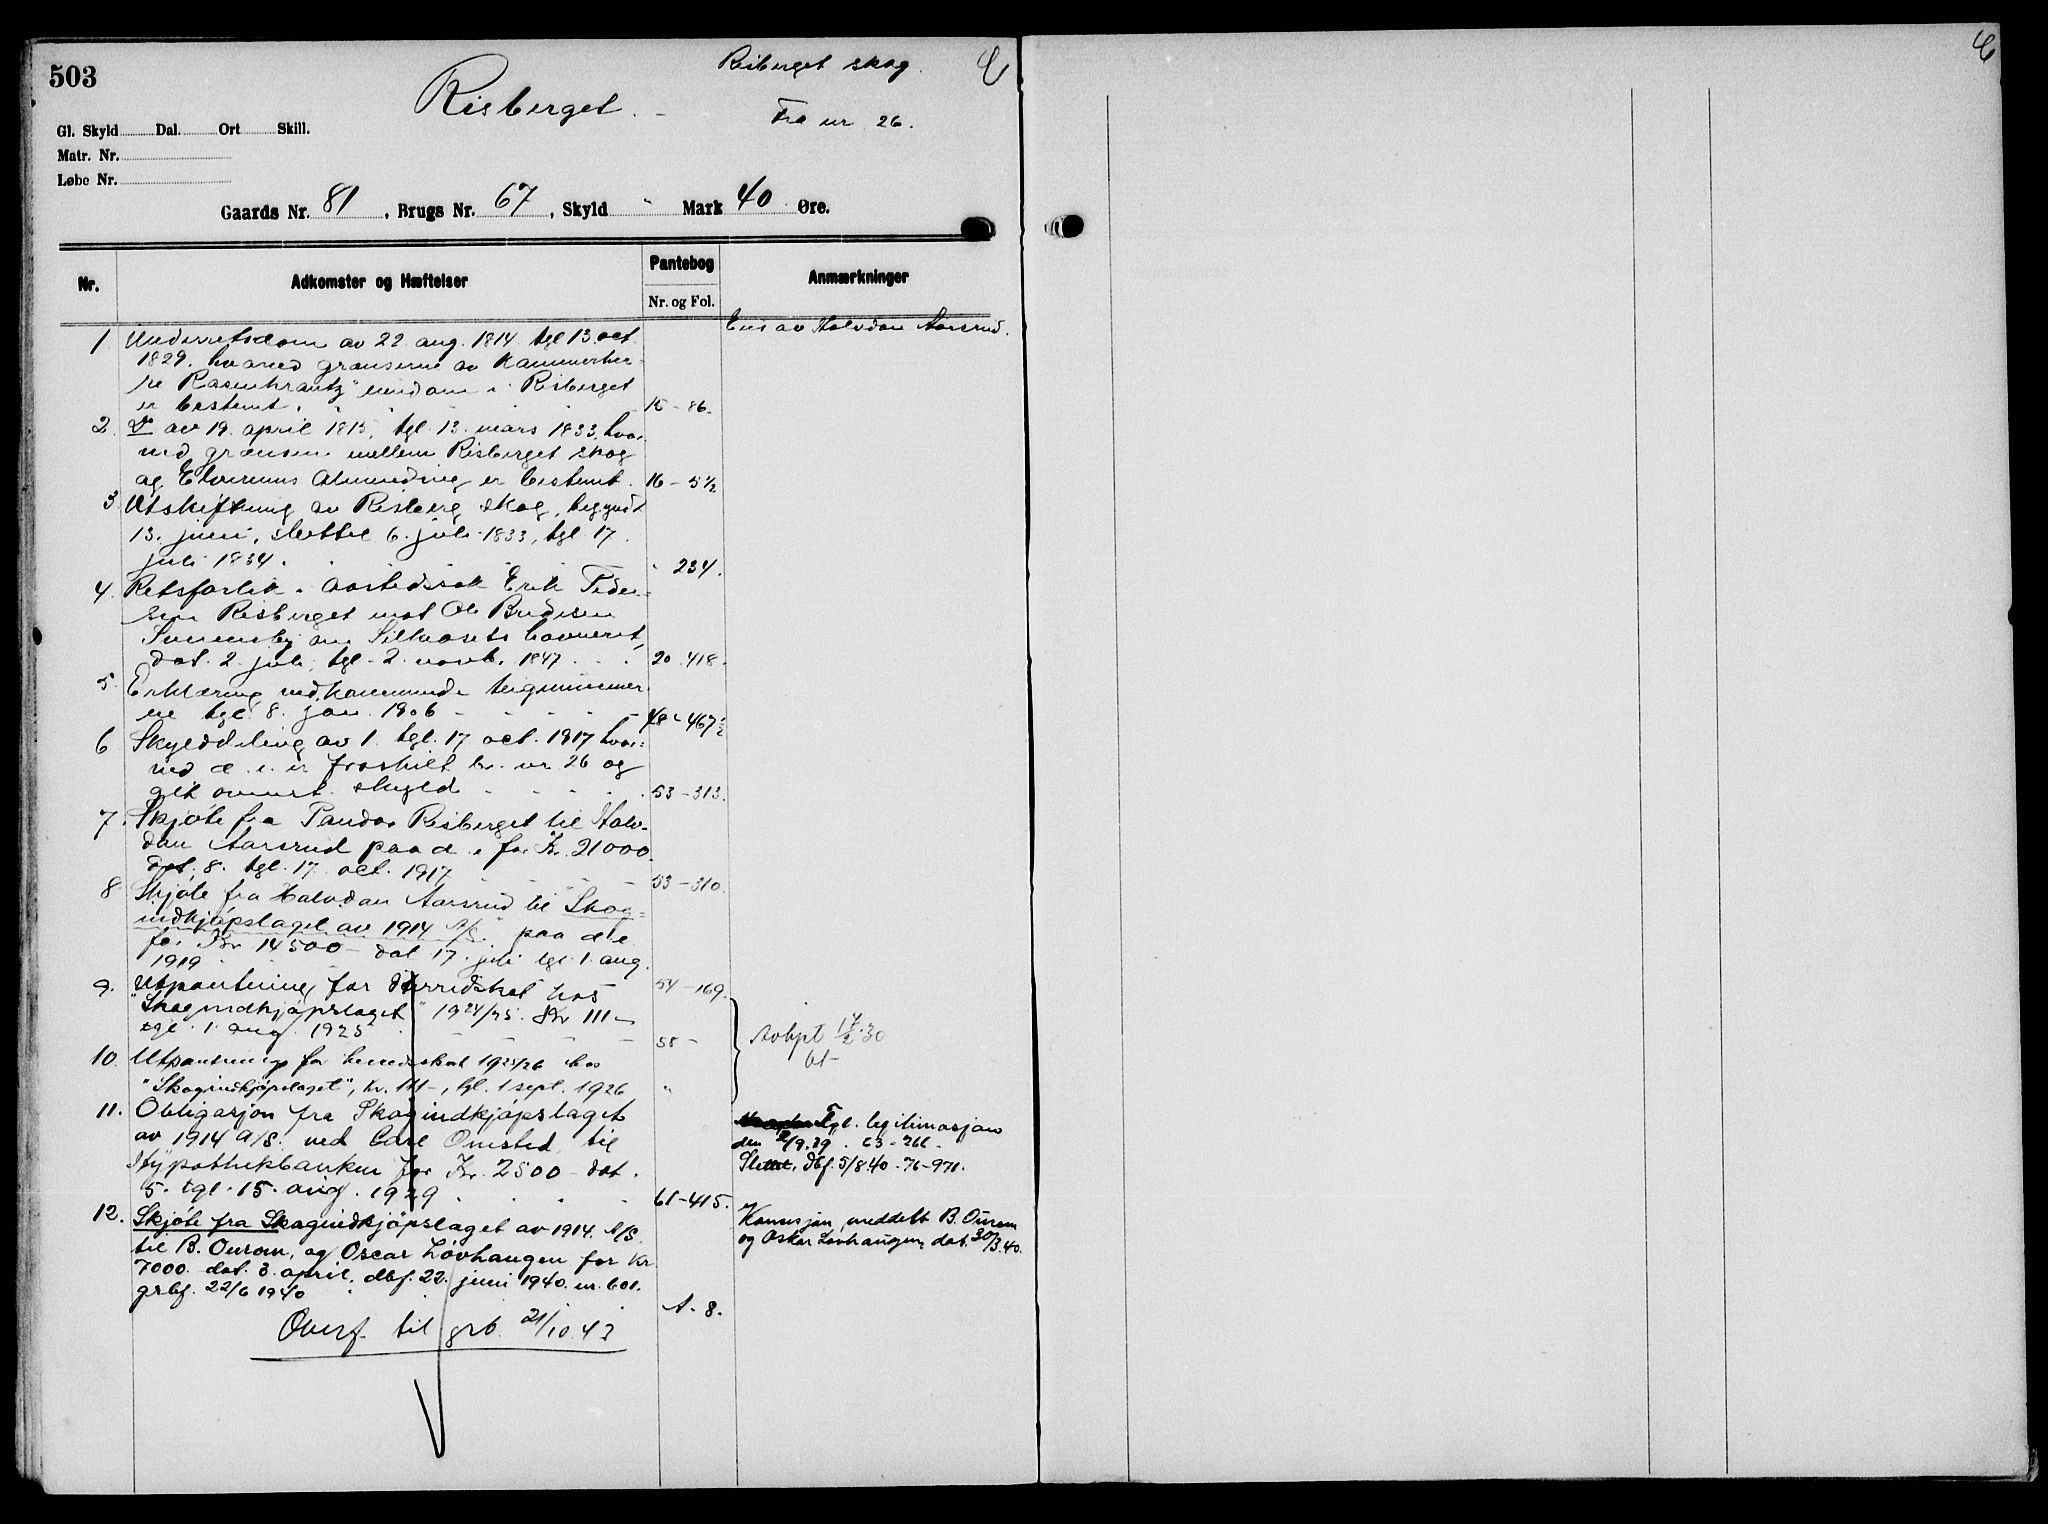 503
Risberget skog.
Risberget.
Fra nr 26.
Gl. Skyld Dal. Ort Skill.
Matr. Nr.
Løbe Nr.
Gaards Nr. 81, Brugs Nr. 67, Skyld " Mark 40 Øre.
Nr. Adkomster og Hæftelser Pantebog Nr. og Fol. Anmærkninger
Eies av Halvdan Aarsrud.
1 Underretsdom av 22 aug. 1814 tgl 13. oct.
1829. hvorved grænserne av Kammerher-
re Rosenkrantz' eiendom i Risberget
er bestemt. 15 - 86.
2. Do av 19. april 1815, tgl. 13. mars 1833, hvor-
ved grænsen mellem Risberget skog
og Elverums Almending er bestemt. 16 - 5 1/2
3 Utskiftning av Risberg skog, begyndt
13. juni, sluttet 6. juli 1833, tgl 17
juli 1834. " 234.
4. Retsforlik i aastedssak Erik Peder-
sen Risberget mot Ole
om havneret,
dat. 2. juli, tgl. 2. novb. 1847 20 . 418.
5. Erklæring vedkommende teignummer-
ne tgl. 8. jan. 1906 48 - 467 1/2
6 Skylddeling av 1. tgl. 17 oct. 1917 hvor-
ved d. e. er fraskilt br. nr 26 og
git ovennt. skyld 53 - 313.
7. Skjøte fra Pauder Risberget til Halv-
dan Aarsrud paa d. e. for Kr. 21000
dat. 8. tgl. 17. oct. 1917 53 - 310.
8 Skjøte fra Halvdan Aarsrud til "Skog-
indkjøpslaget av 1914 A/S" paa d e
for Kr 14500 - dat 17. juli tgl. 1. aug.
1919 54 - 169.
9. Utpantning for herredskat hos
"Skogindkjøpslaget" 1924/25. Kr 111 -
tgl. 1. aug. 1925 58 -
Avlyst 17/2 30
10. Utpantning for herredsskat 1925/26 hos
"Skogindkjøpslaget", Kr. 111 -, tgl. 1 sept. 1926 "
11. Obligasjon fra Skogindkjøpslaget
av 1914 A/S. ved Carl Omsted til
Hypothekbanken for Kr. 2500 - dat.
5. tgl. 15. aug. 1929 61 - 415.
Tgl. legitimasjon
den 2/9.39. 63 - 266 -
Slettet. dbf. 5/8.40 - 76 - 971.
12. Skjøte fra Skogindkjøpslaget av 1914. A/S.
til B. Ourom, og Oscar Løvhaugen for Kr.
7000. dat. 3. april, dbf. 22. juni 1940. nr. 601.
grbf. 22/6 1940 A - 8.
Konsesjon, meddelt B. Ourom
og Oskar Løvhaugen, dat. 30/3.40.
Overf. til grb. 21/10.43